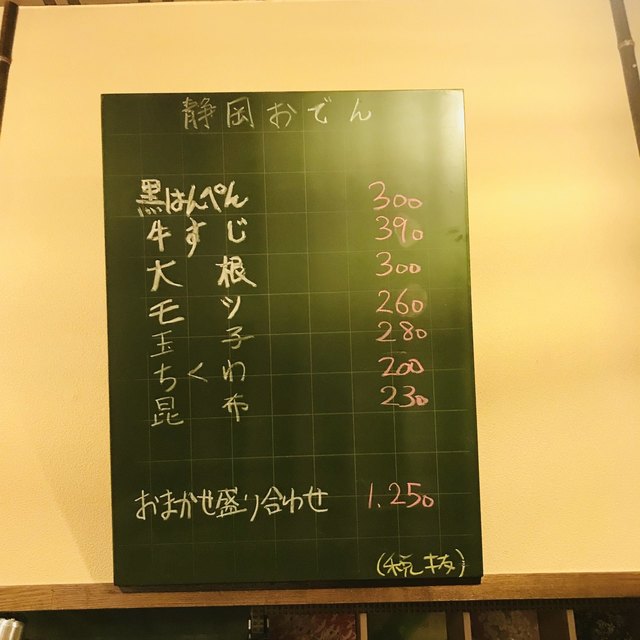 静岡おでん
黒はんぺん 300
牛すじ 390
大根 300
モツ 260
玉子 280
ちくわ 200
昆布 230
おまかせ盛り合わせ 1.250
(税抜)